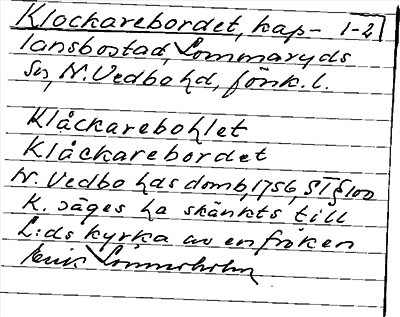 Klockarebordet, kap- 1-2
lansbostad, Lommaryds
sn, N. Vedbo hd, Jönk. l.
Klåckarebohlet
Klåckarebordet
N. Vedbo hds domb, 1756, ST § 100
K. säges ha skänkts till
L:ds kyrka av en fröken